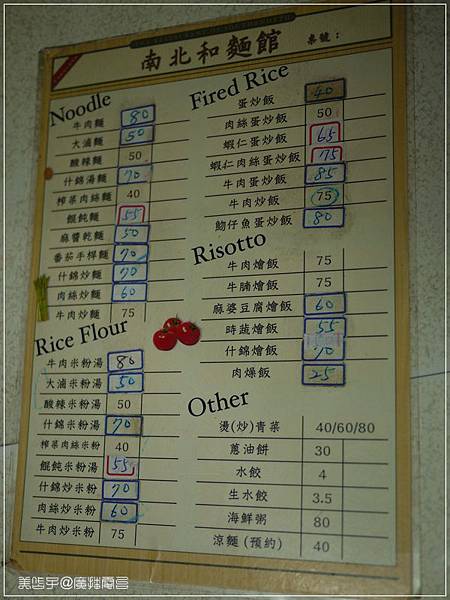 南北和麵館
桌號：
Noodle
牛肉麵 80
大滷麵 50
酸辣麵 50
什錦湯麵 70
榨菜肉絲麵 40
餛飩麵 55
麻醬乾麵 50
番茄手桿麵 70
什錦炒麵 70
肉絲炒麵 60
牛肉炒麵 75
Rice Flour
牛肉米粉湯 80
大滷米粉湯 50
酸辣米粉湯 50
什錦米粉湯 70
榨菜肉絲米粉 40
餛飩米粉湯 55
什錦炒米粉 70
肉絲炒米粉 60
牛肉炒米粉 75
Fired Rice
蛋炒飯 40
肉絲蛋炒飯 50
蝦仁蛋炒飯 65
蝦仁肉絲蛋炒飯 75
牛肉蛋炒飯 85
牛肉炒飯 75
魩仔魚蛋炒飯 80
Risotto
牛肉燴飯 75
牛腩燴飯 75
麻婆豆腐燴飯 60
時蔬燴飯 55
什錦燴飯 70
肉燥飯 25
Other
燙(炒)青菜 40/60/80
蔥油餅 30
水餃 4
生水餃 3.5
海鮮粥 80
涼麵 (預約) 40